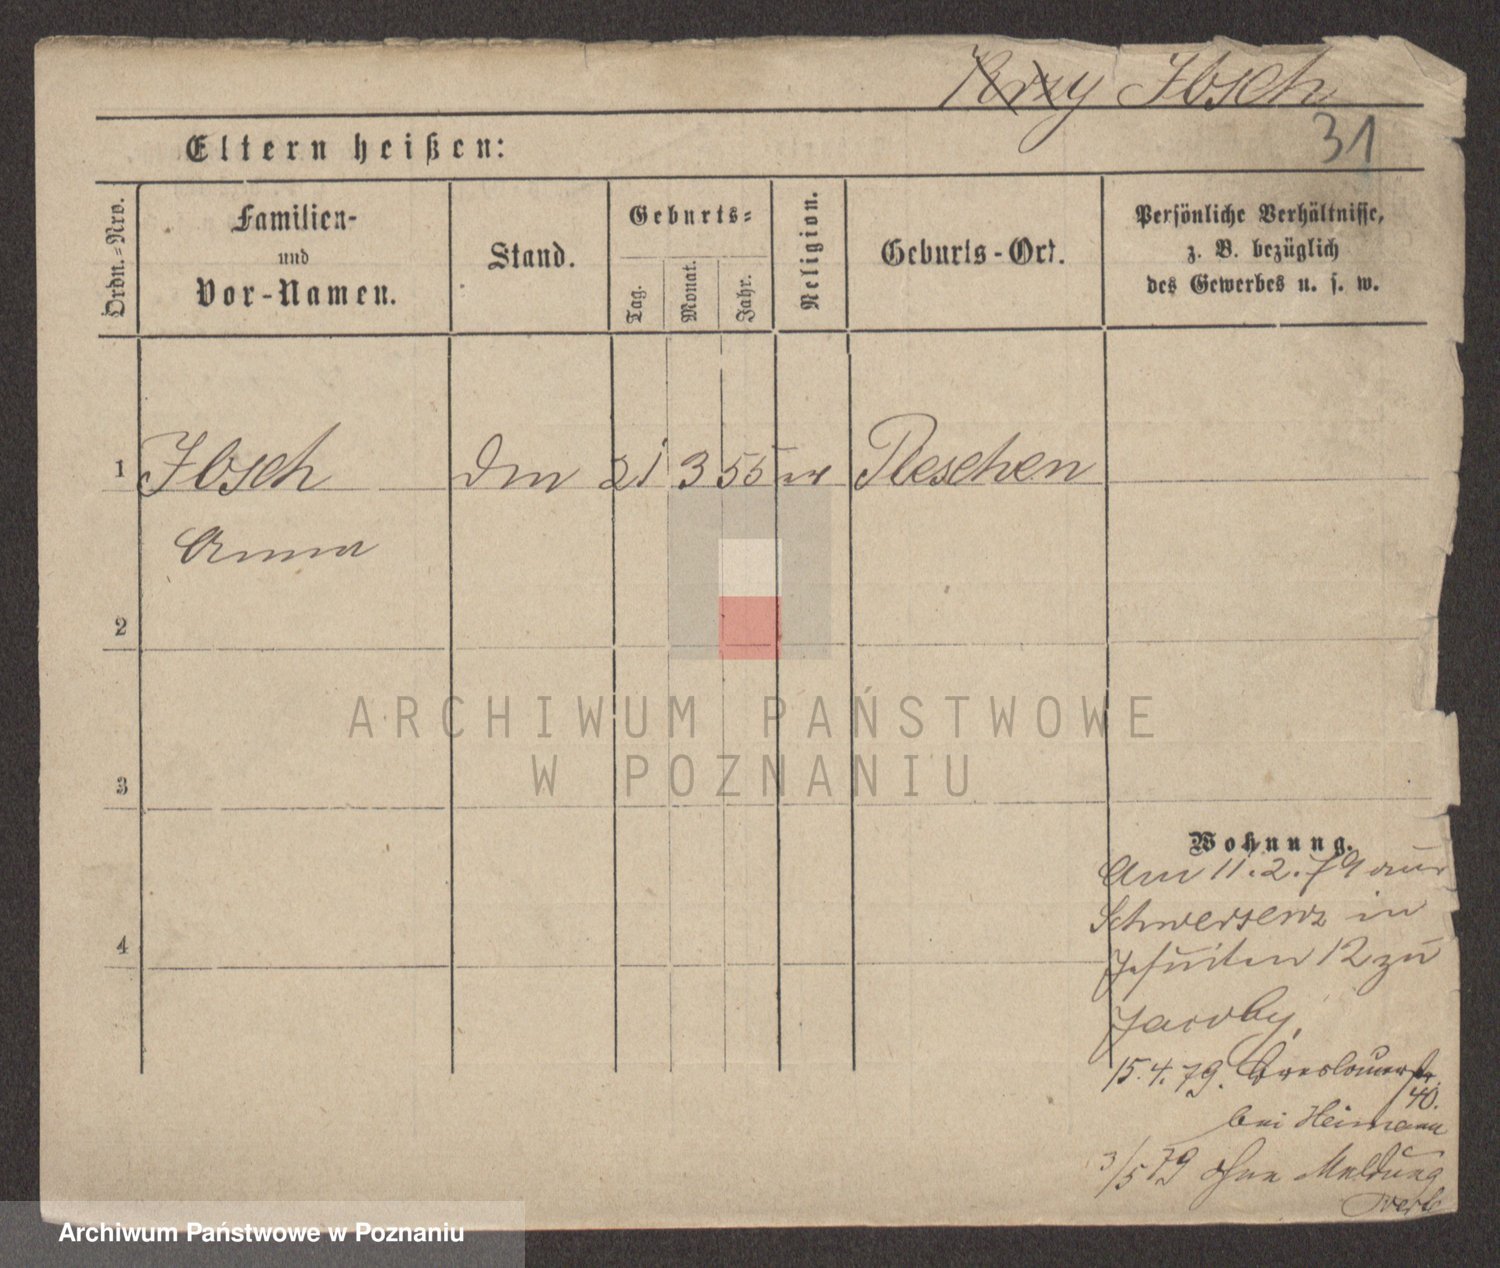 Krzy Ibsch
31
Eltern heißen:
Ordn.-Nro.
Familien-
und
Vor-Namen.
Stand.
Geburts-
Tag.
Monat.
Jahr.
Religion.
Geburts-Ort.
Persönliche Verhältnisse,
z. B. bezüglich
des Gewerbes u. s. w.
1 Ibsch 21 3 55 Pleschen
Anna
2
3
4
ARCHIWUM PAŃSTWOWE
W POZNANIU
Wohnung.
Am 11.2.79 aus
Schwersenz in
Jesuiten 12 zu
Jacoby.
15.4.79. Breslauerstr.
40.
bei Heimann
3/5 79 ohne Meldung
Archiwum Państwowe w Poznaniu